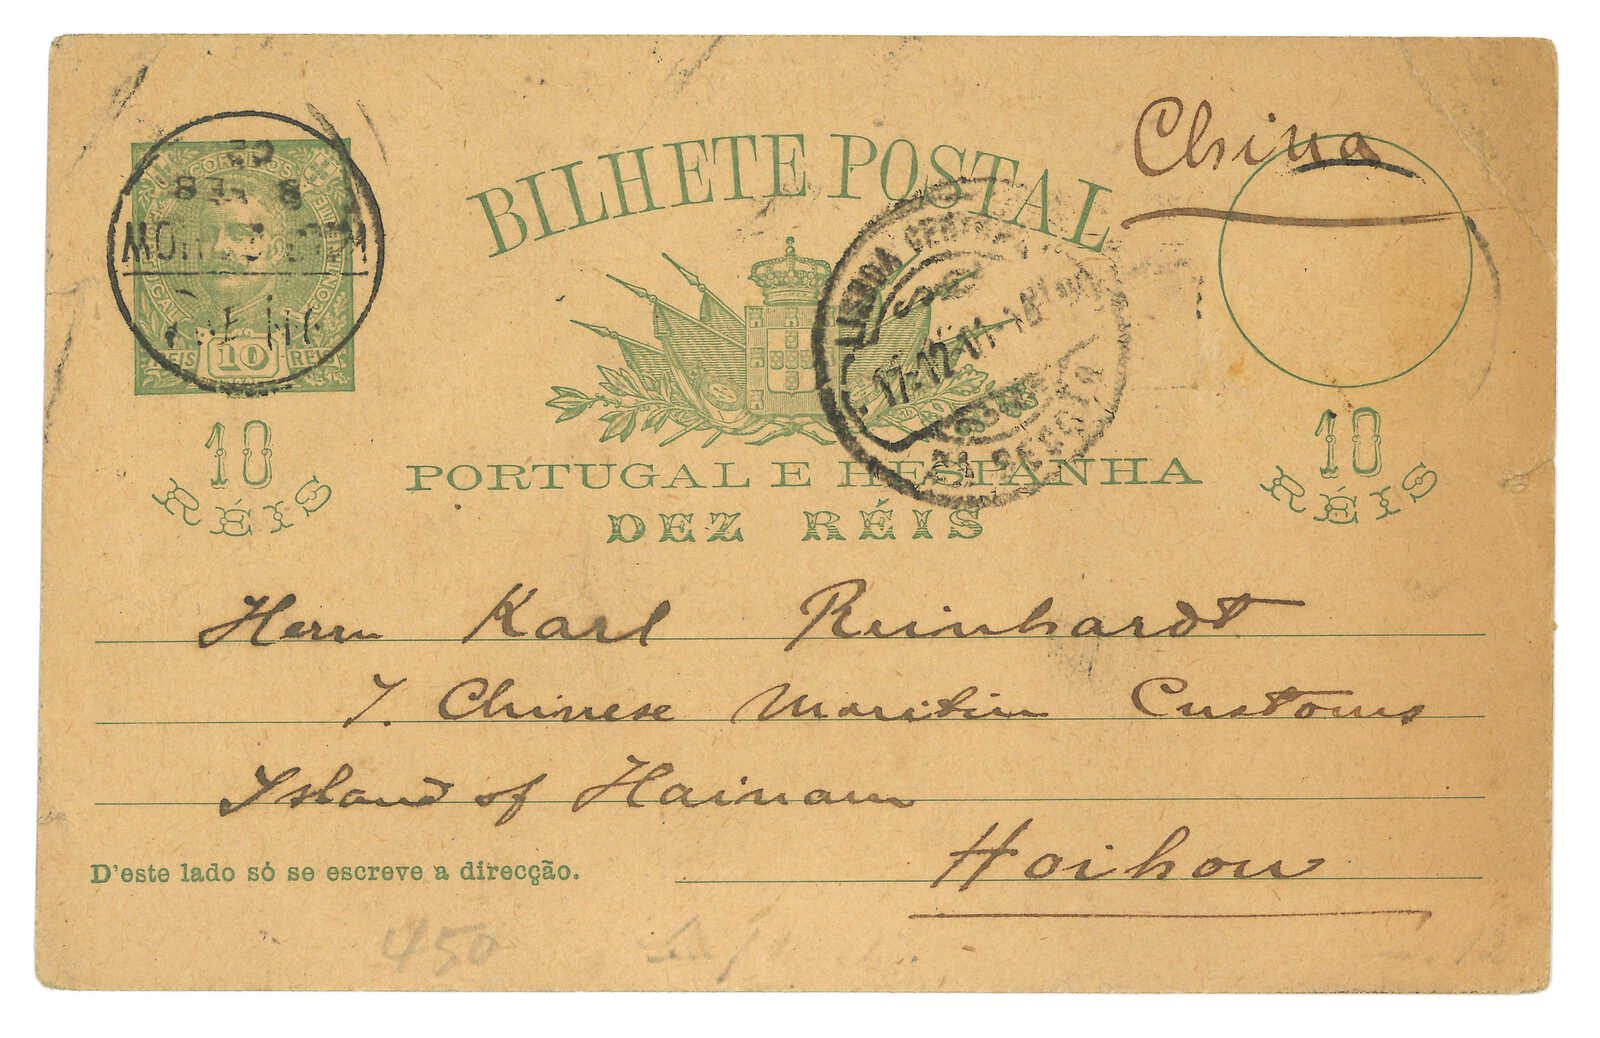 China
BILHETE POSTAL
CORREIOS
REIS 10 REIS
LISBOA CENTRAL
17-12-01
10 RÉIS
10 RÉIS
PORTUGAL E HESPANHA
DEZ RÉIS
Herrn Karl Reinhardt
I. Chinese Maritim Customs
Island of Hainam
Hoihow
D'este lado só se escreve a direcção.
450